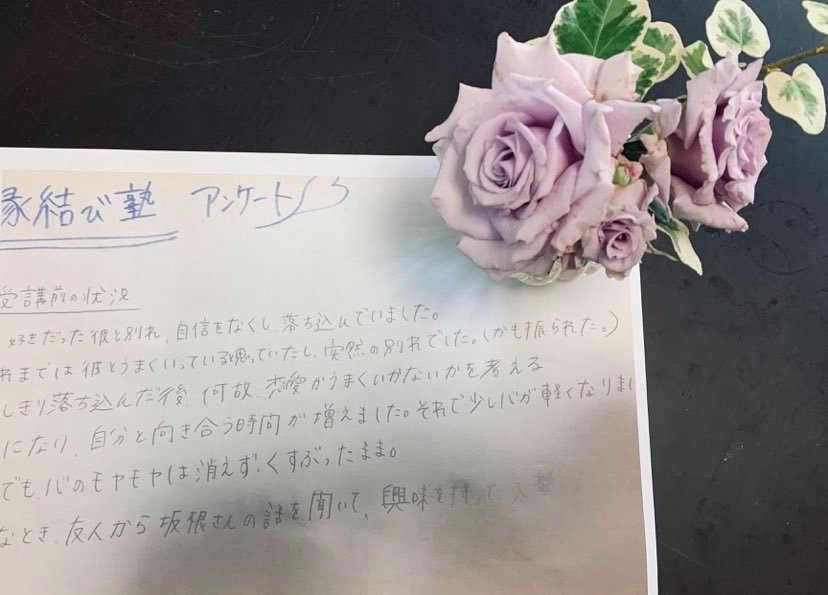 縁結び塾 アンケート
受講前の状況
好きだった彼と別れ、自信をなくし、落ち込んでいました。
れまでは彼とうまくいっていると思っていたし、突然の別れでした。(かも振られた。)
しきり落ち込んだ後、何故、恋愛がうまくいかないかを考える
になり、自分と向き合う時間が増えました。それで少し心が軽くなりまし
でも、心のモヤモヤは消えず、くすぶったまま。
なとき、友人から坂根さんの話を聞いて、興味を持って、入塾